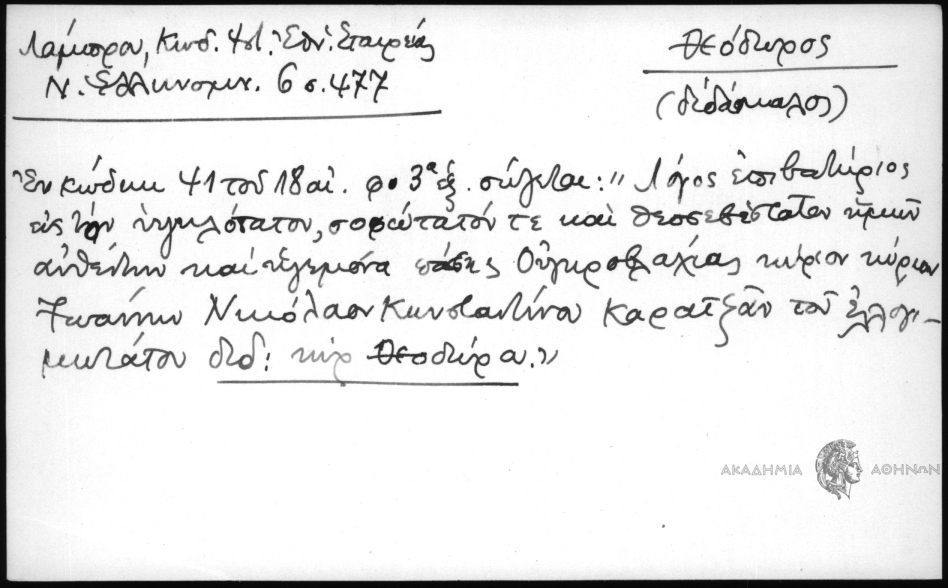 Λάμπρου, Κώδ. 41. Ἱστ. Ἐθν. Ἑταιρείας
Ν. Ἑλληνομν. 6 σ. 477
Θεόδωρος
(διδάσκαλος)
Ἐν κώδικι 41 τοῦ 18 αἰ. φ. 3α ἑξ. σώζεται: "Λόγος ἐπιβατήριος
εἰς τὸν ὑψηλότατον, σοφώτατόν τε καὶ θεοσεβέστατον ἡμῶν
αὐθέντην καὶ ἡγεμόνα πάσης Οὐγκροβλαχίας κύριον κύριον
Ἰωάννην Νικόλαον Κωνσταντίνου Καρατζᾶν τοῦ ἐλλογι-
μωτάτου διδ: κὺρ Θεοδώρου."
ΑΚΑΔΗΜΙΑ ΑΘΗΝΩΝ